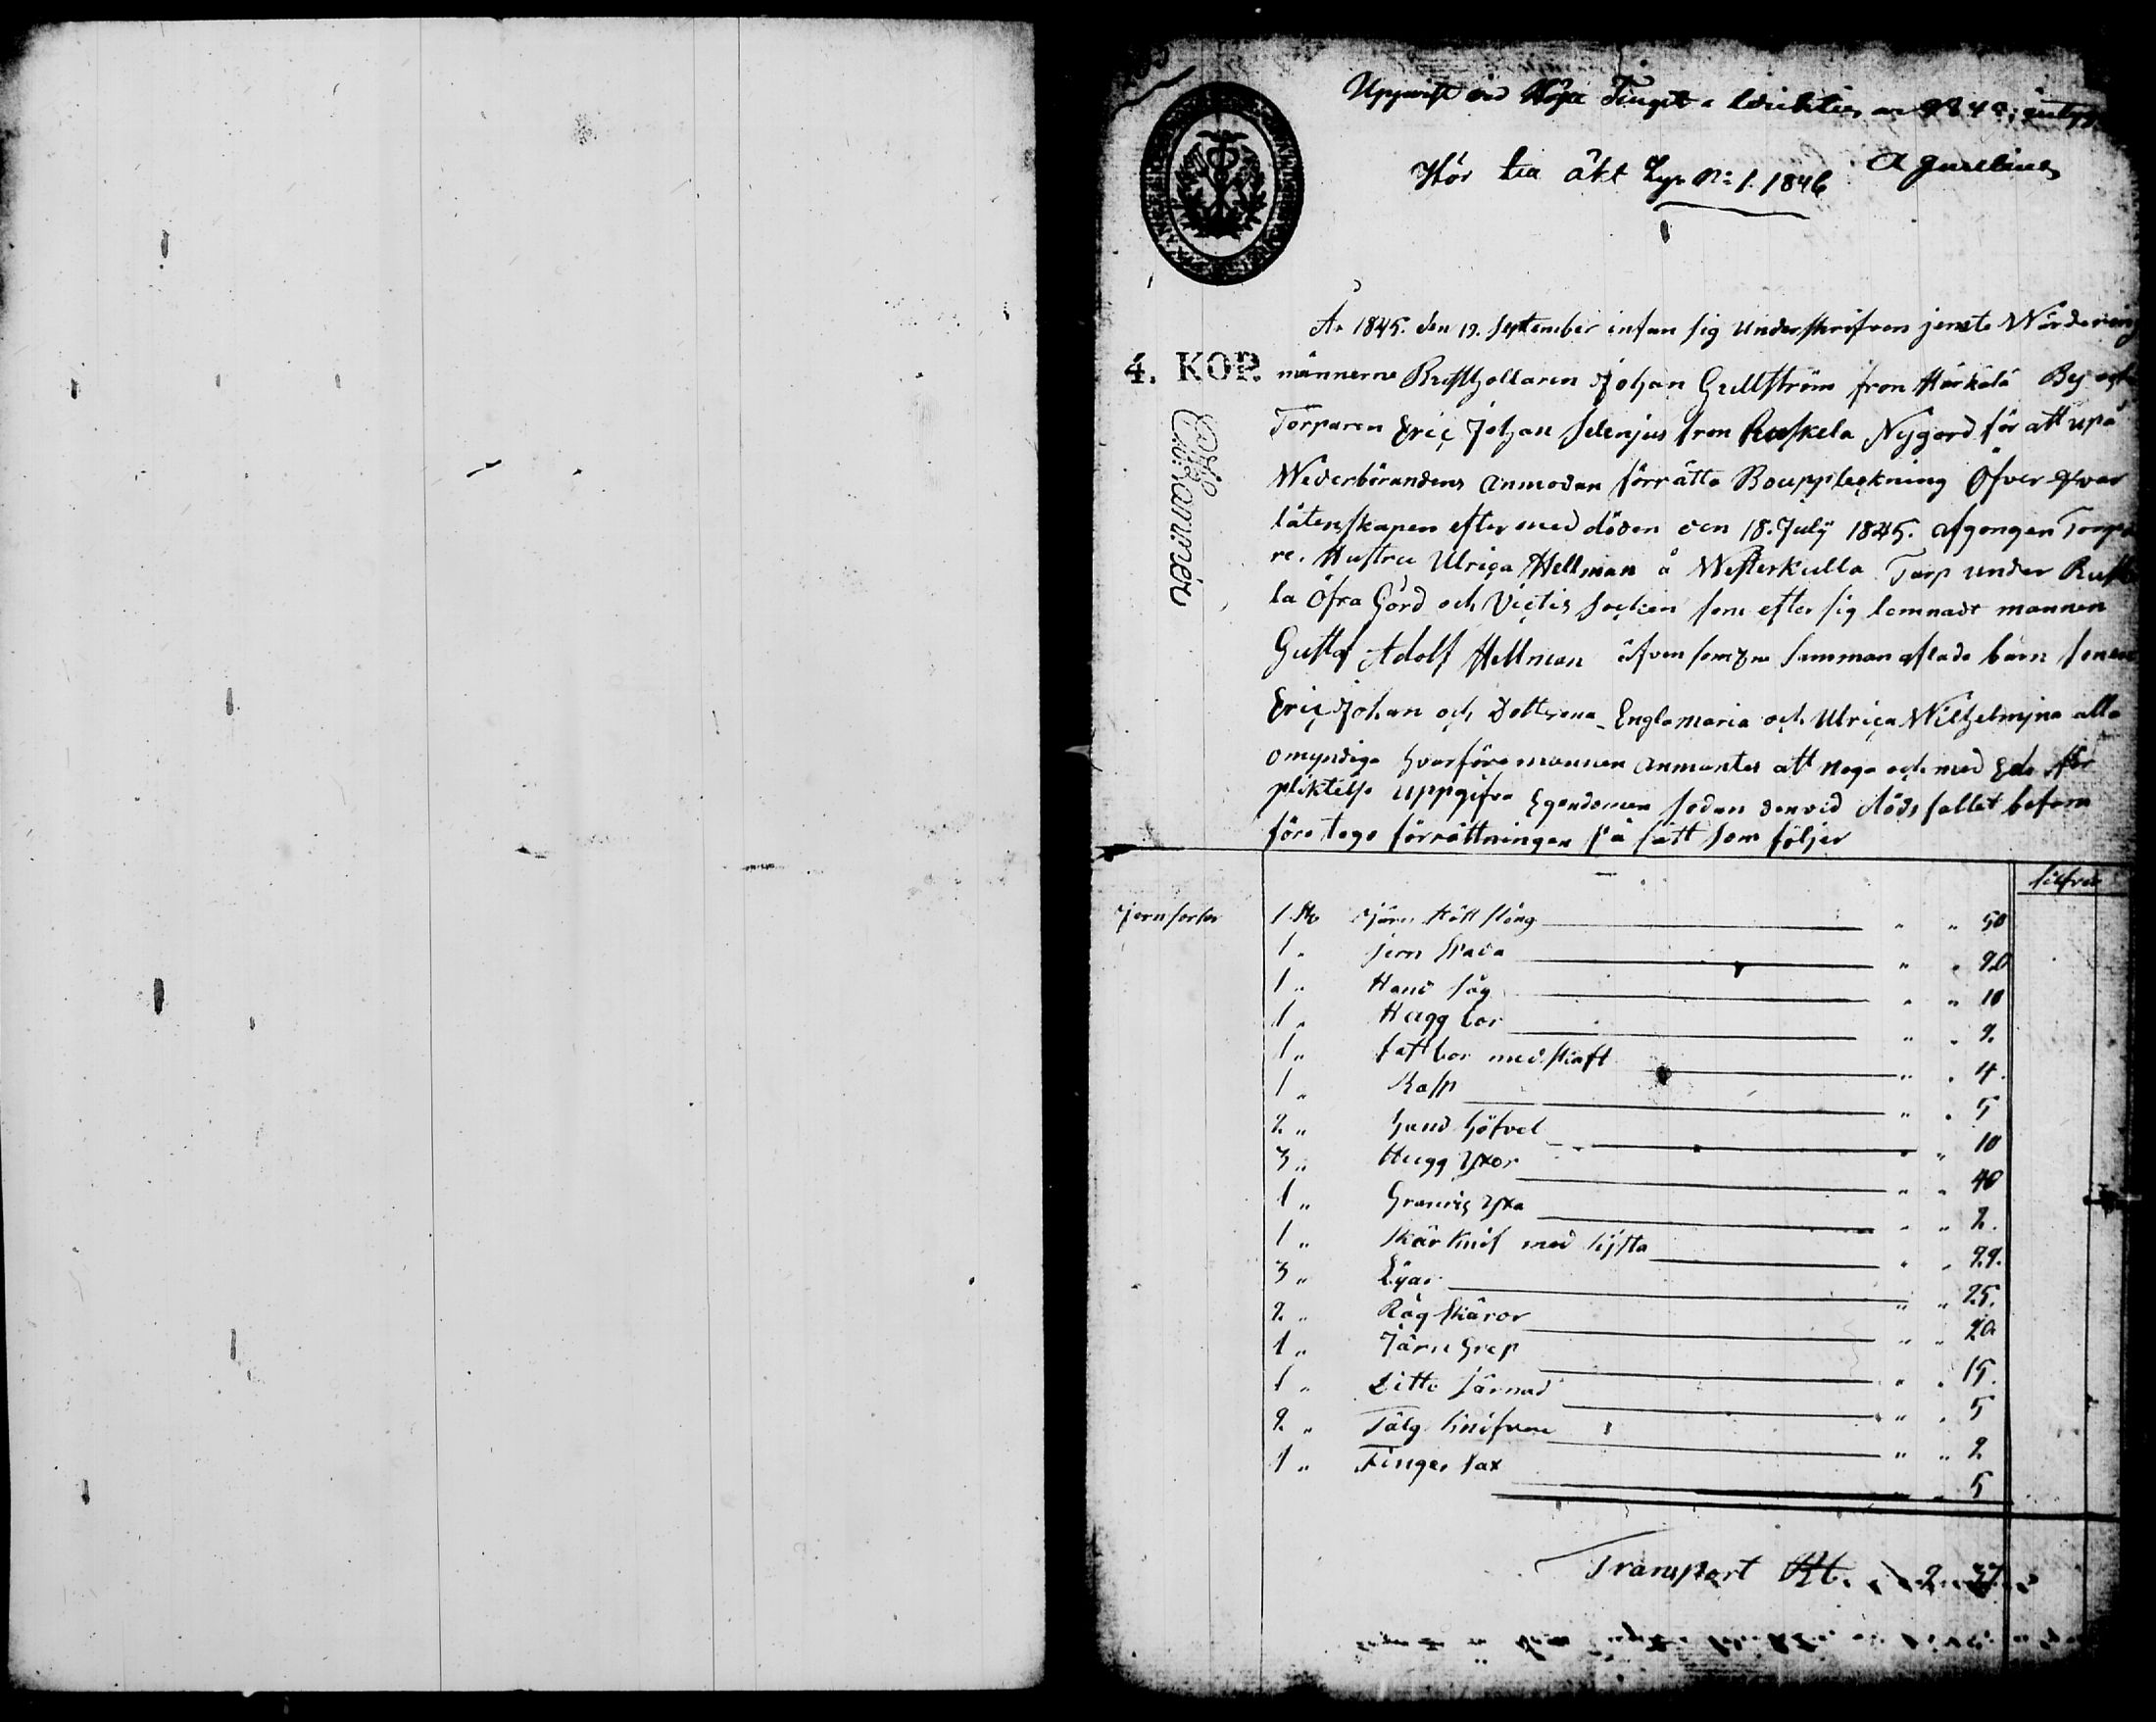 Uppvist vid Tinget i 1846; intyg
A Gurelius
Hör till åkt N: 1. 1846
År 1845. den 19. September infan sig Underskrifven jemte Wärderings
4. KOP.
männerne Rusthollaren Johan Gullström fron Härkälä By och
Torparen Eric Johan Selenjus fron Ruskela Nygord för att upå
Wederbörandens anmodan förrätta Bouppteckning Öfver qvar
låtenskapen efter med döden den 18. July 1845. afgongen Torpa
re. Hustru Ulrica Hellman å Westerkulla Torp under Ruske
la Öfra Gord och Victis Socken som efter sig lemnadt mannen
Gustaf Adolf Hellman äfven som Samman aflade barn Sonen
Eric Johan och Dottrena Englamaria och Ulrica Wilhelmjna alla
omyndiga hvarföre mannen anmantes att noga och med Eds för
pliktelse uppgifva Egendomen sodan den vid dödsfallet befans
före togs förrättningen på sätt som följer
Silfver
Jernsaker 1 St. Järn Stöng " " 50
1 " Jern Spada " " 20
1 " Hand Såg " " 10
1 " Hugg bor " " 2
1 " bor med skaft " " 4.
1 " Rasp " " 5
2 " hand höfvel " " 10
3 " Hugg Yxor " " 40
1 " Yxa " " 2.
1 " Skär Knif med kijsta " " 22.
3 " Lijar " " 25.
2 " Råg Skäror " " 20
1 " Järn Grep " " 15.
1 " Ditto Järnad " " 5
2 " Tälg Knifvar " " 2
1 " Finger Sax " " 5
Transport Rbl. 2 37